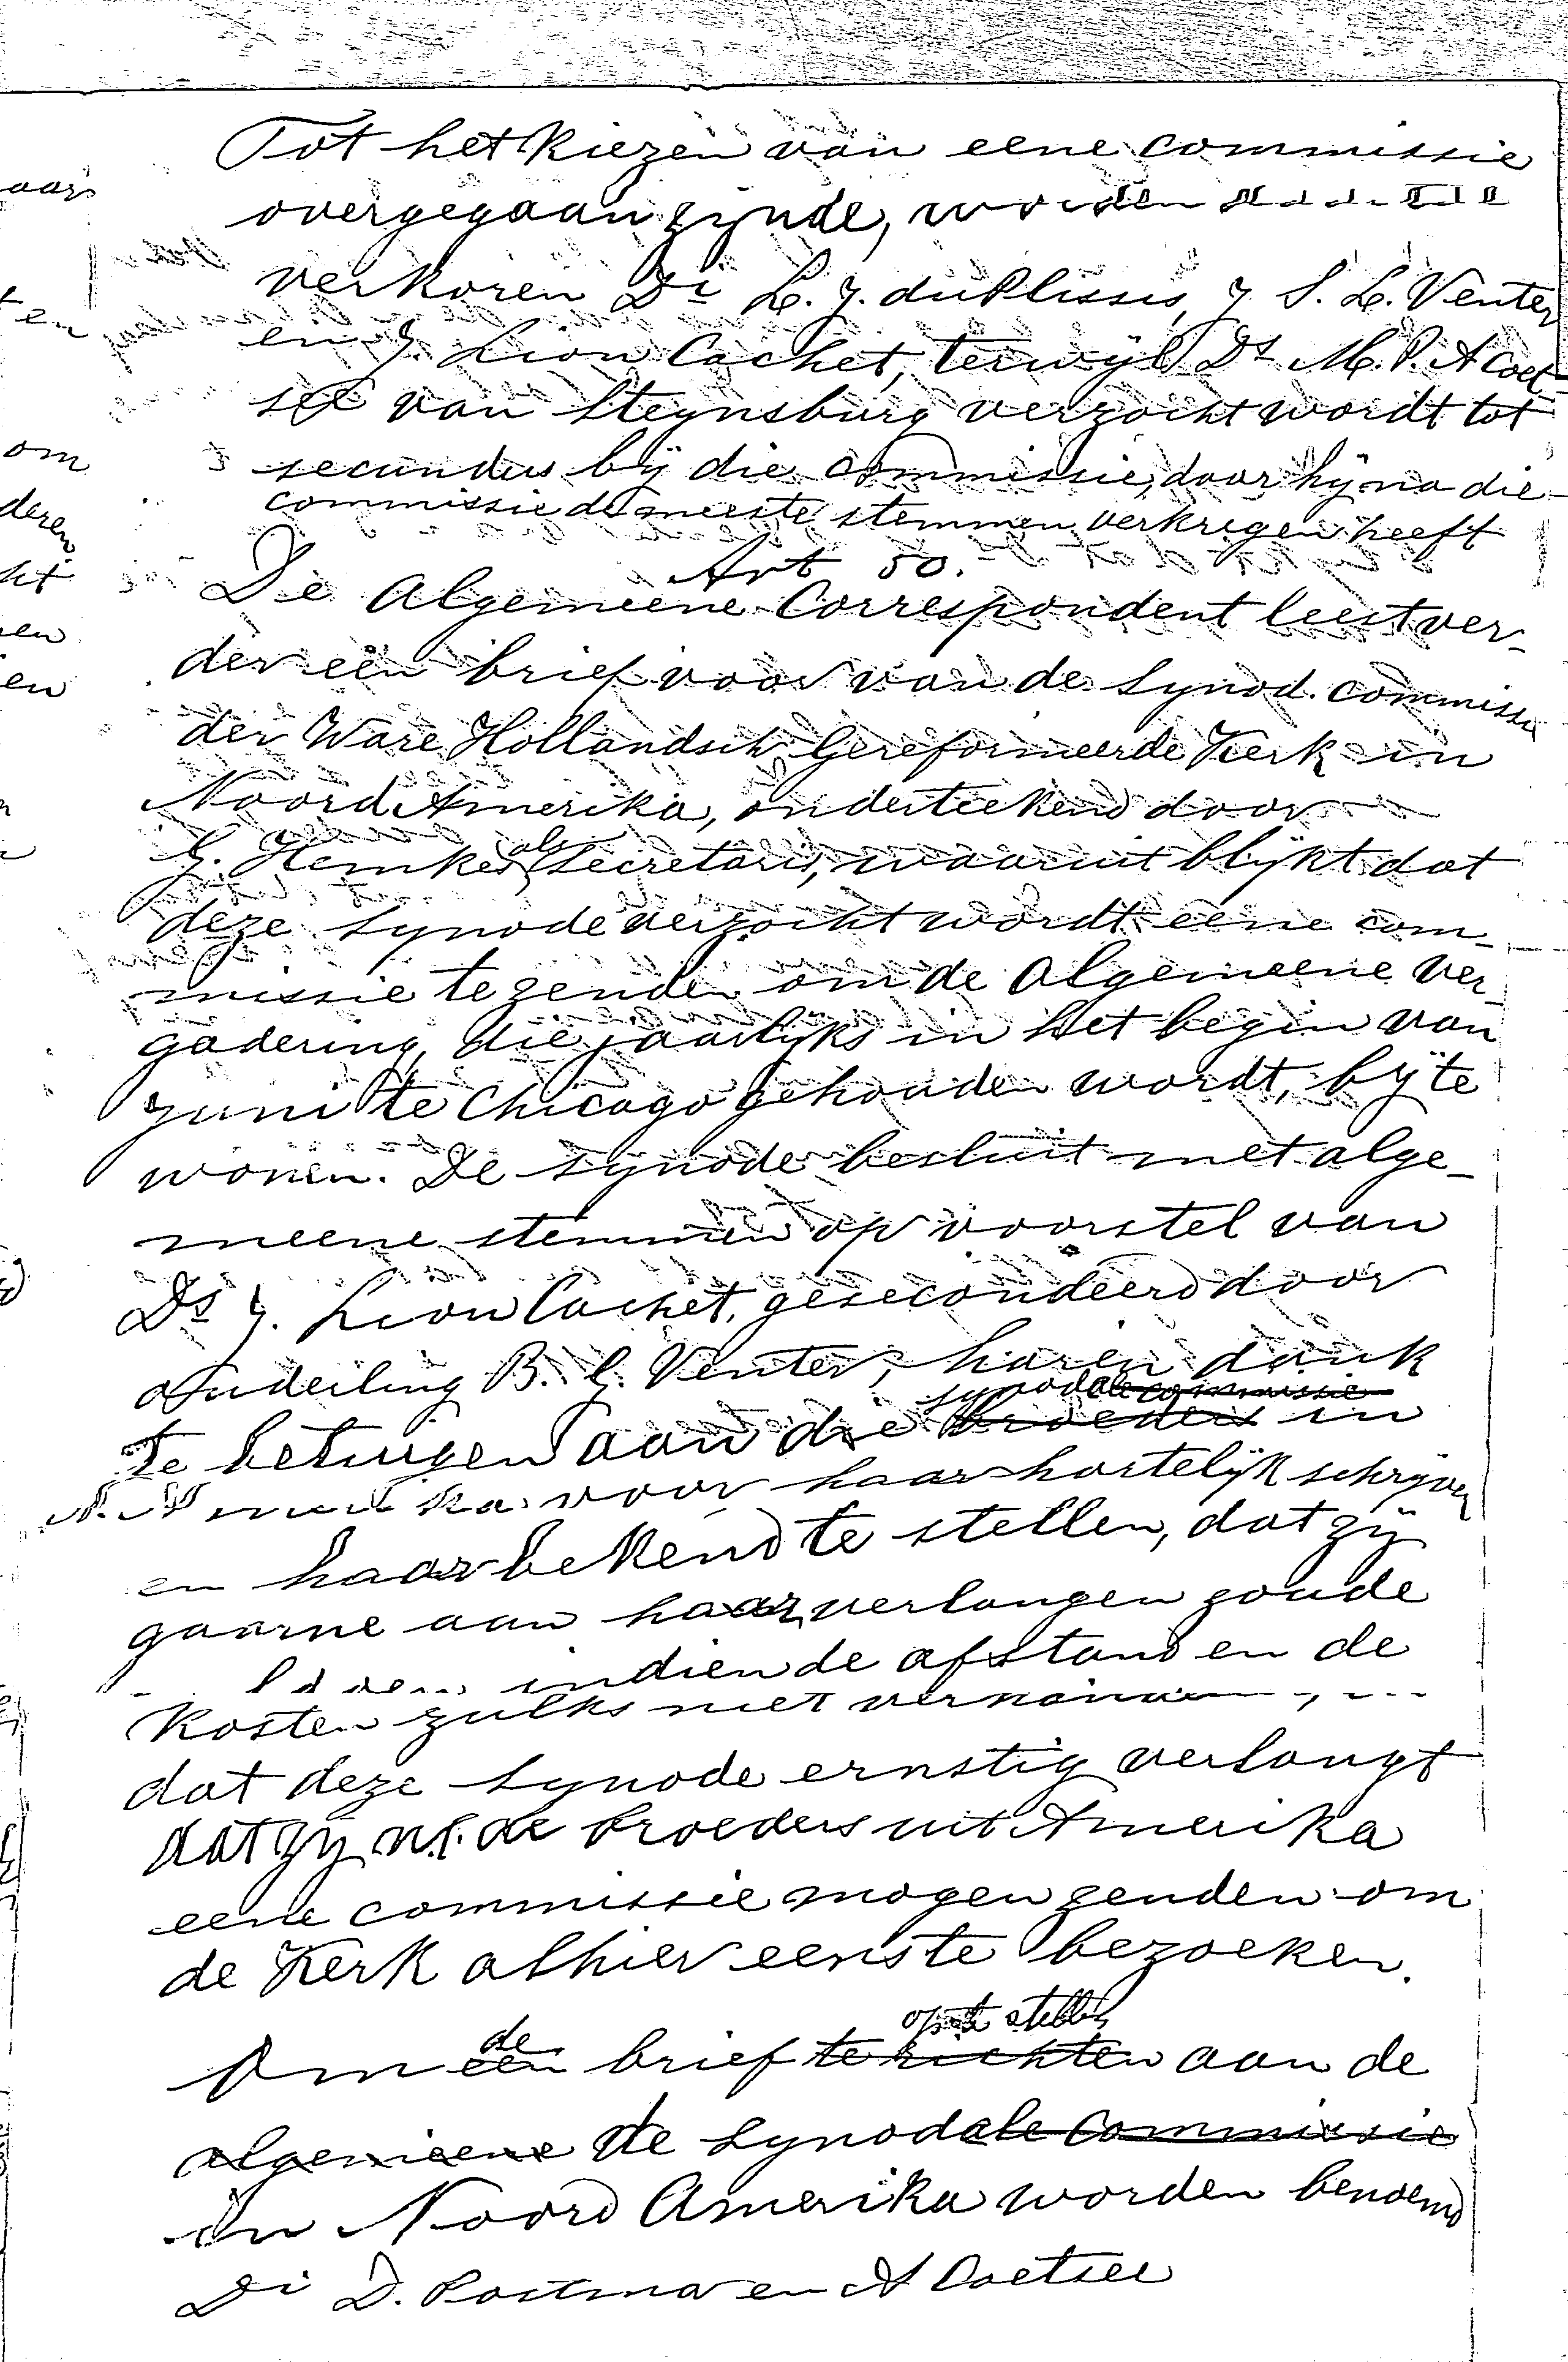 Tot het kiezen van eene commissie
overgegaan zijnde, worden
verkoren Di L. J. du Plissis, J S. L. Venter
en J. Lion Cachet, terwijl Ds M. P. A Coet-
see van Steynsburg verzocht wordt tot
secundus bij die commissie, daar hij na die
commissie de meeste stemmen verkregen heeft
Art 50.
De Algemeene Correspondent leest ver-
der een brief voor van de Synod. commissie
der Ware Hollandsch Gereformeerde Kerk in
Noord Amerika, onderteekend door
G. Hemkes als Secretaris, waaruit blijkt dat
deze Synode verzocht wordt eene com-
missie te zenden om de Algemeene Ver-
gadering, die jaarlijks in het begin van
Juni te Chicago gehouden wordt, bij te
wonen. De Synode besluit met alge-
meene stemmen op voorstel van
Ds J. Lion Cachet, gesecondeerd door
Ouderling B. G. Venter, haren dank
synodale commissie
te betuigen aan die broeders in
N. Amerika voor haar hartelijk schrijven
en haar bekend te stellen, dat zij
gaarne aan haar verlangen zoude
indien de afstand en de
kosten zulks niet
dat deze Synode ernstig verlangt
dat zij n.l. de broeders uit Amerika
eene commissie mogen zenden om
de Kerk alhier eens te bezoeken.
de op te stellen
Om een brief te richten aan de
algemeene de Synodale Commissie
in Noord Amerika worden benoemd
Di D. Postma en A Coetsee
aar
ten
om
deren
ht
en
en